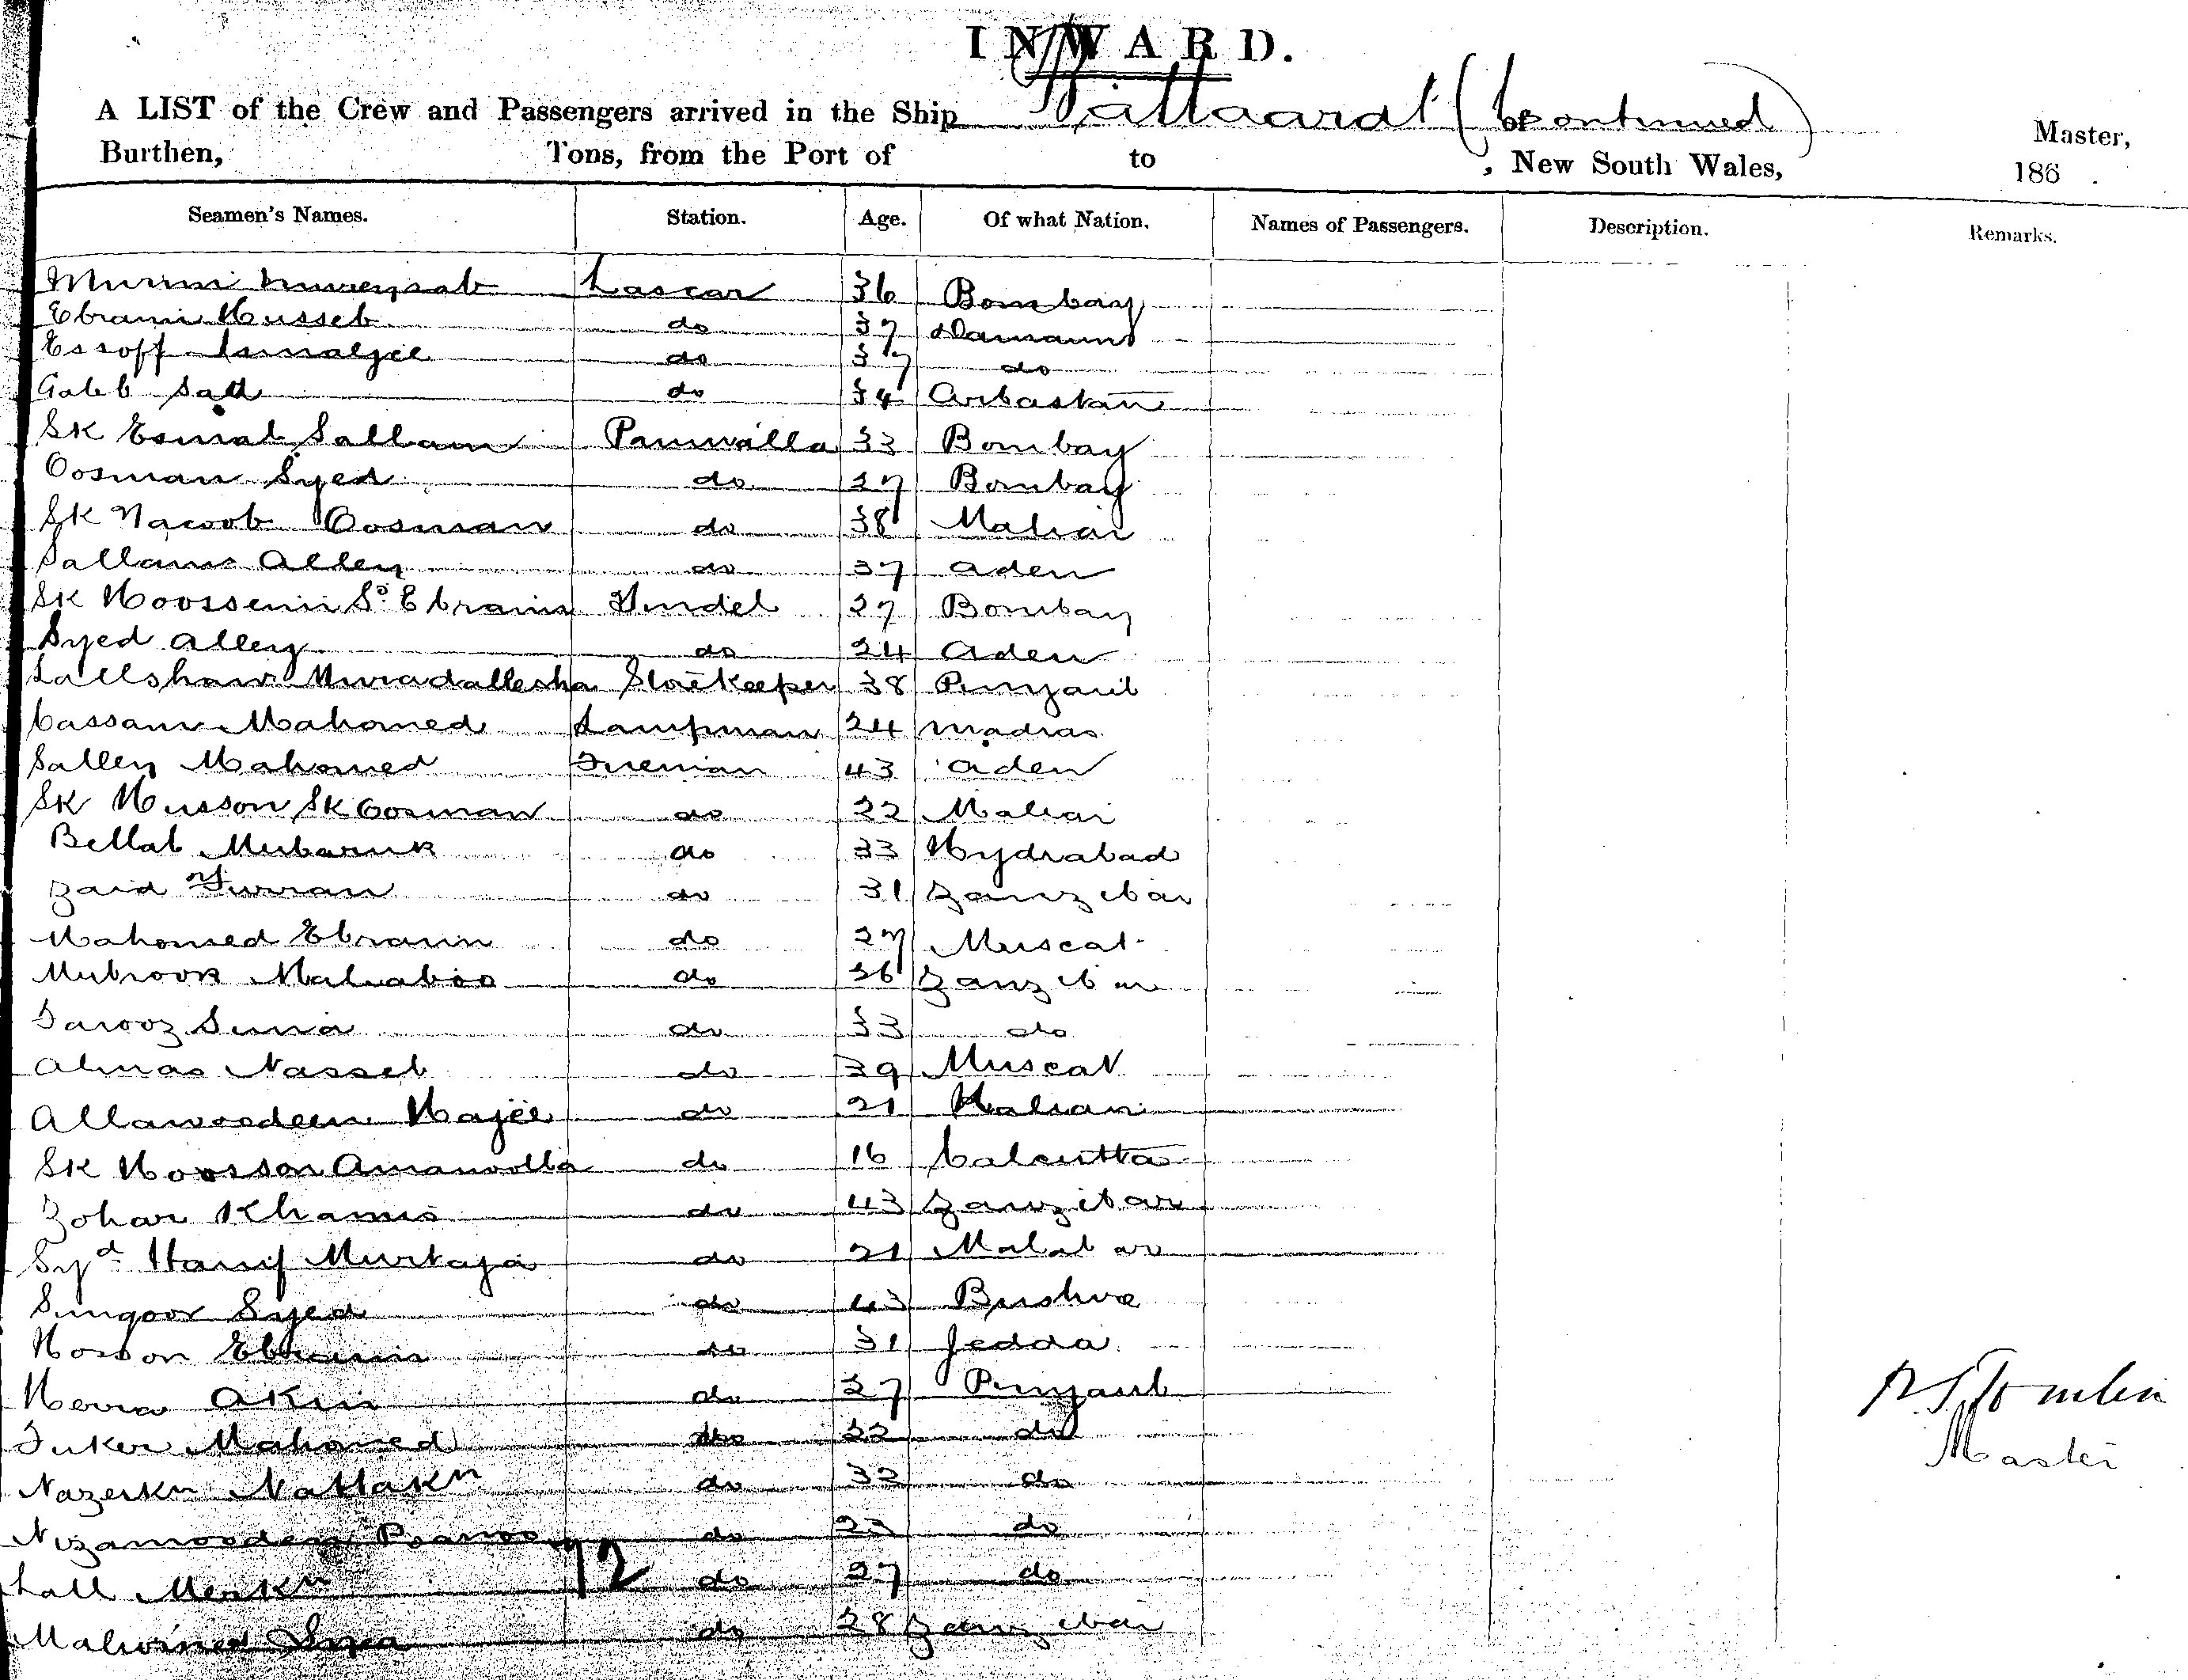 INWARD.
A LIST of the Crew and Passengers arrived in the Ship Wattaarat (Continued) Master,
Burthen, Tons, from the Port of to , New South Wales, 186 .
Seamen's Names. Station. Age. Of what Nation. Names of Passengers. Description. Remarks.
Lascar 36 Bombay
Ebram Husseb do 37 Damaun
Essoff Ismaljee do 37 do
Galeb Sad do 34 Arbastan
SK Esmal Sallam Paniwalla 33 Bombay
Oosman Syed do 27 Bombay
SK Nacoob Oosman do 38 Mahai
Sallam Alley do 37 Aden
SK Hoossein So Ebraim Tindel 27 Bombay
Syed Alley do 24 Aden
Lallshaw Muradallesha Storekeeper 38 Punjaub
Cassam Mahomed Lampman 24 Madras
Salley Mahomed Fireman 43 Aden
SK Husson SK Oosman do 22 Mahai
Bellal Mubaruk do 33 Hydrabad
Zaid Furran do 31 Zanzibar
Mahomed Ebraim do 27 Muscat
Mubrook Mahaboo do 36 Zanzibar
Farooz Sima do 33 do
Almas Nasseb do 39 Muscat
Allawoodeen Hajee do 21
SK Hoosson Amanoolla do 16 Calcutta
Zohar Khamis do 43 Zanzibar
Syd Hanif Murtaja do 21 Malabar
Sungoor Syed do 43 Bushra
Hosson Ebraim do 31 Jedda
Akim do 27 Punjaub
Fuker Mahomed do 22 do
Nazerkn Nattakn do 32 do
Nizamooden do 22 do
Lall Merkn 72 do 27 do
Mahomed Syea do 28 Zanzibar
Tomlin
Master